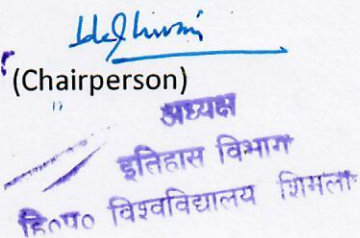 (Chairperson)
अध्यक्ष
इतिहास विभाग
हि०प्र० विश्वविद्यालय शिमला